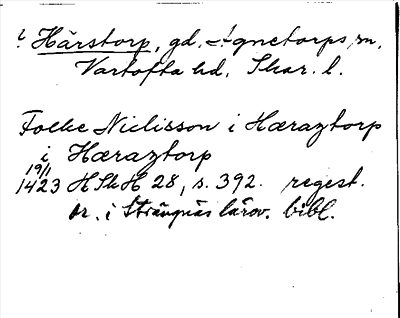 i Härstorp, gd, Agnetorps sn,
Vartofta hd, Skar. l.
Folke Niclisson i Hæraztorp
i Hæraztorp
19/1
1423 HSkH 28, s. 392. regest.
or. i Strängnäs lärov. bibl.